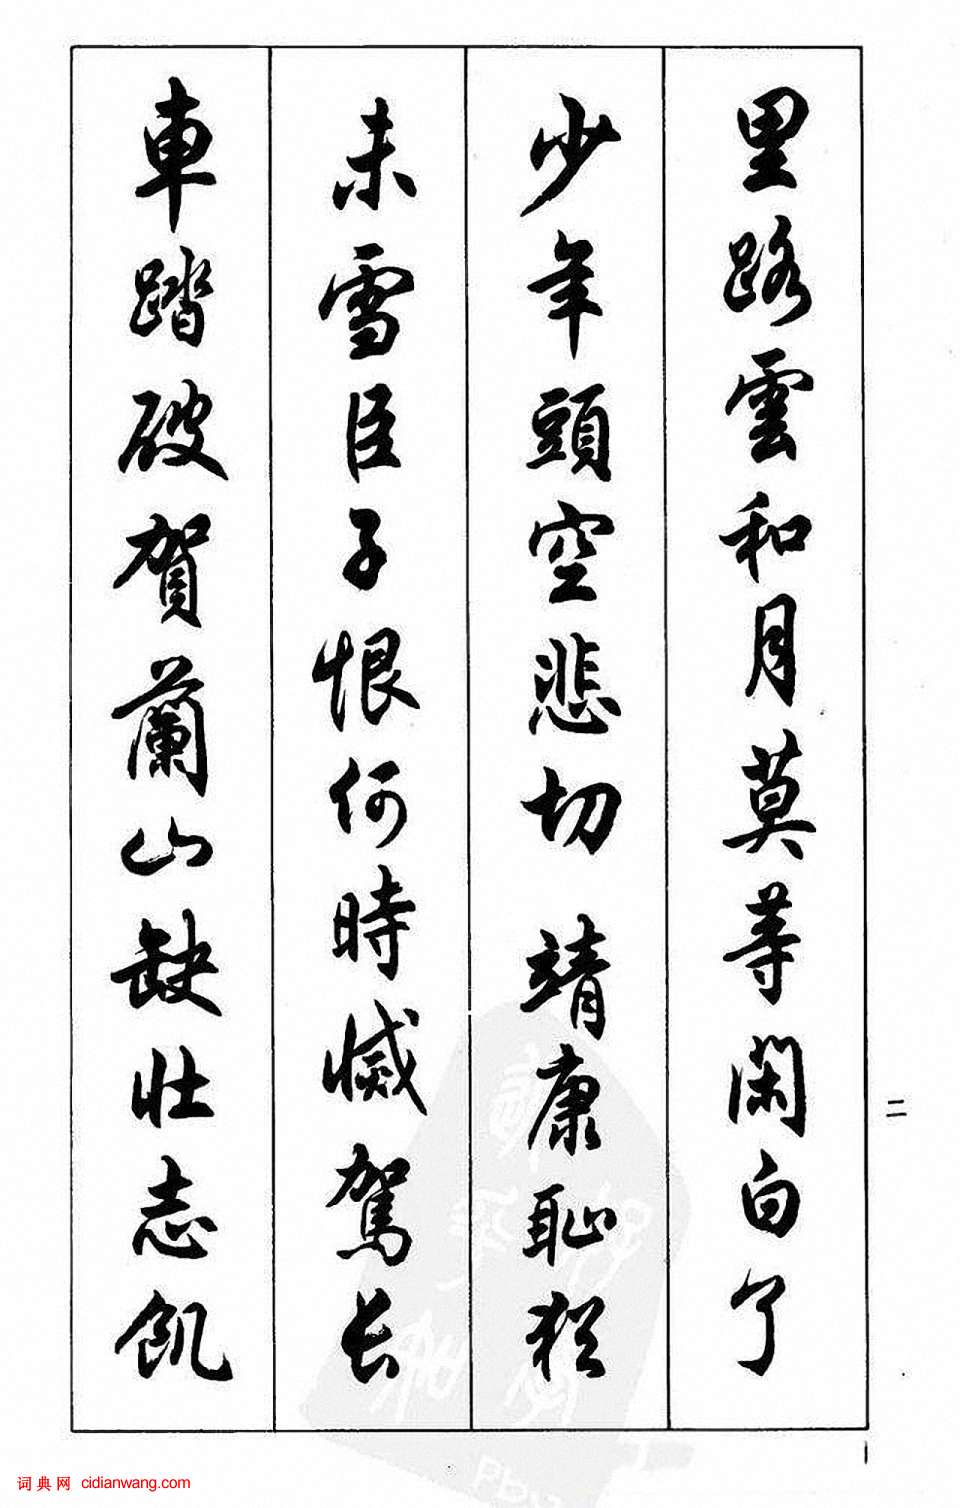 里路雲和月莫等閑白了
少年頭空悲切靖康恥猶
未雪臣子恨何時憾駕长
車踏破賀蘭山缺壯志飢
二
词典网 cidianwang.com